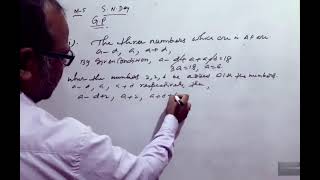 M-5 S.N.Dey
G.P
i). The three numbers which are in AP are
a-d, a, a+d,
By given condition, a-d+a+a+d=18
3a=18, a=6
When the numbers 2, 2, be added with the numbers
a-d, a, a+d respectively, the
a-d+2, a+2, a+d+